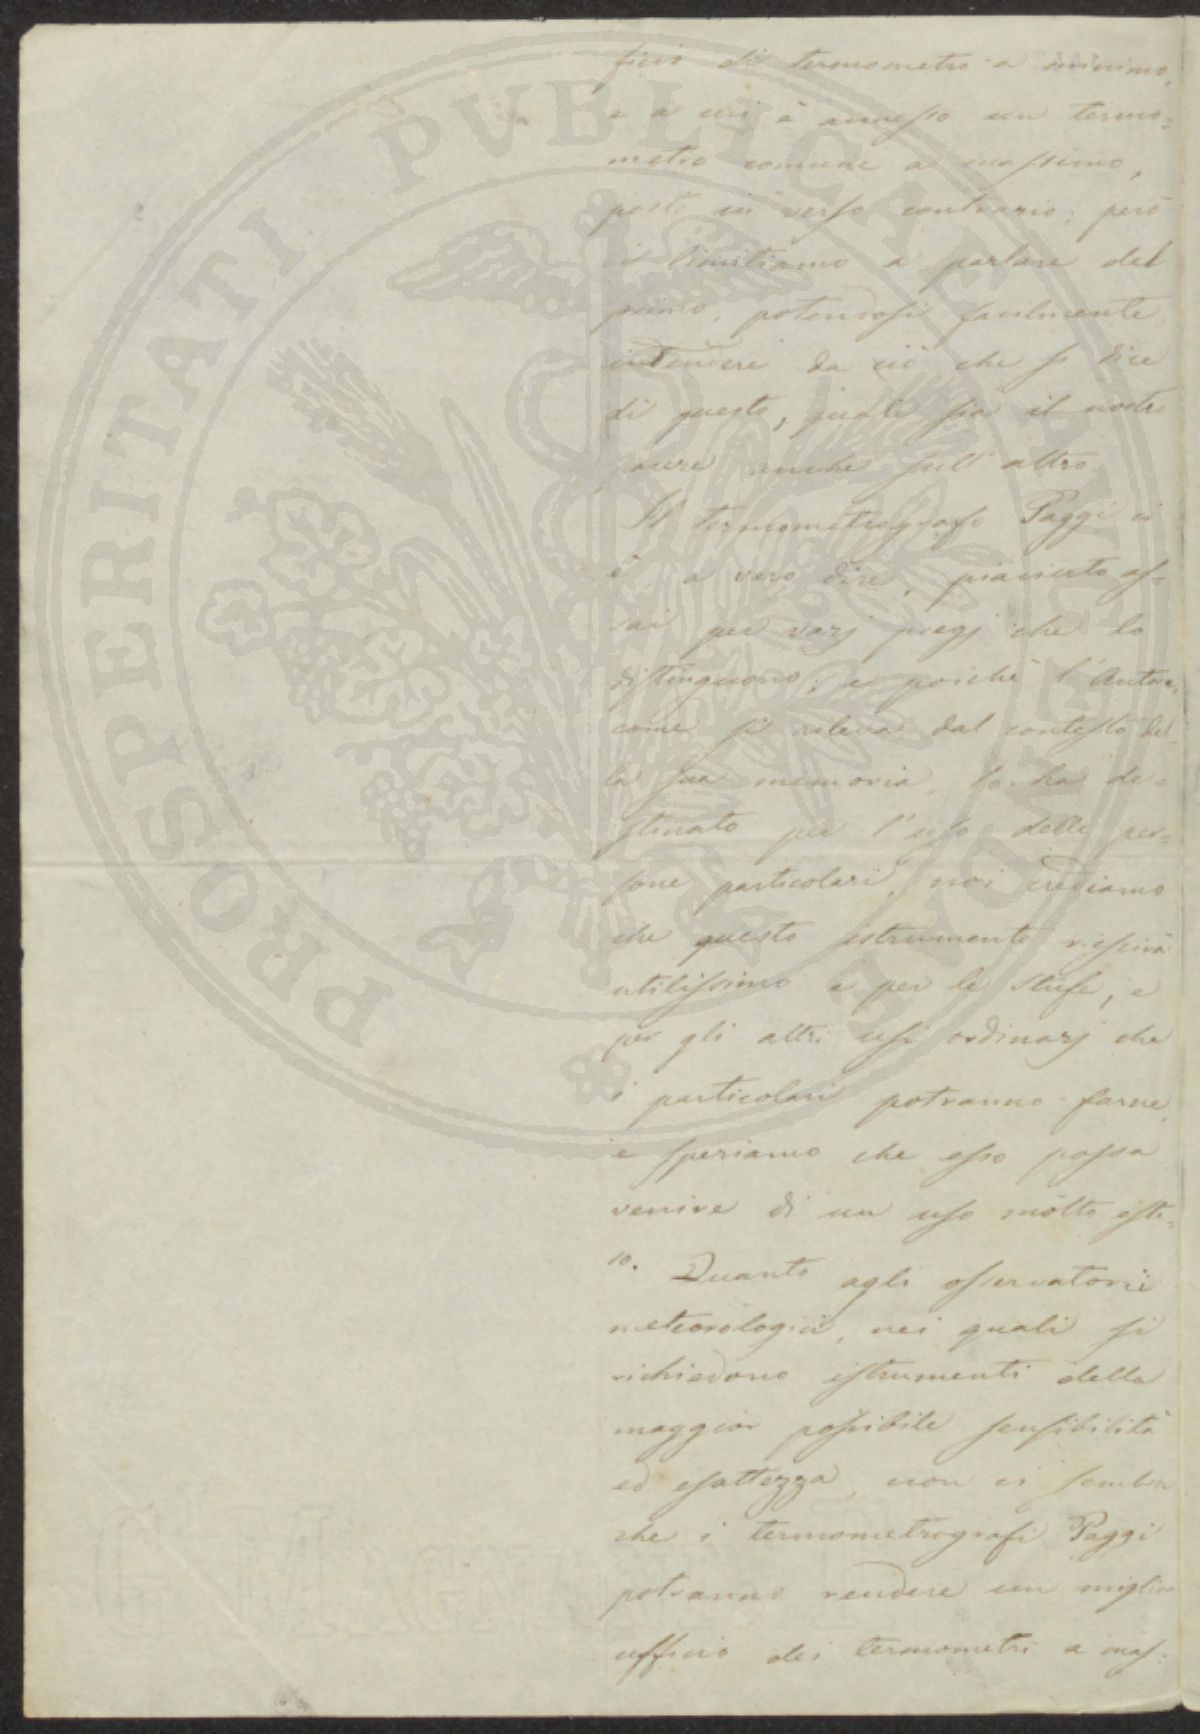 ficio di termometro a minimo,
e a cui è annesso un termo=
metro comune a massimo,
posto in verso contrario; però
ci limitiamo a parlare del
primo, potendosi facilmente
intendere da ciò che si dice
di questo, quale sia il nostro
parere anche sull'altro.
Il termometrografo Paggi ci
è, a vero dire, piaciuto as=
sai per varj pregj che lo
distinguono; e poichè l'Autore,
come si rileva dal contesto del=
la sua memoria, lo ha de=
stinato per l'uso delle per=
sone particolari, noi crediamo
che questo istrumento riescirà
utilissimo e per le stufe, e
per gli altri usi ordinarj che
i particolari potranno farne,
e speriamo che esso possa
venire di un uso molto este=
so. Quanto agli osservatorii
meteorologici, nei quali si
richiedono istrumenti della
maggior possibile sensibilità
ed esattezza, non ci sembra
che i termometrografi Paggi
potranno rendere un miglior
ufficio dei termometri a mas=
PROSPERITATI PUBLICAE AUGENDAE